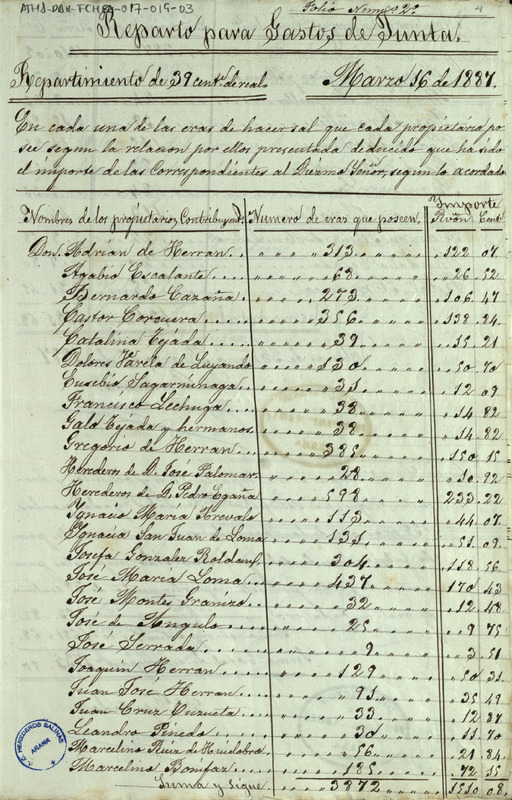 ATHA-DAH-FCHSA-017-019-03
Folio Num.º 2º
Reparto para Gastos de Junta.
Repartimiento de 39 cent.s de real. Marzo 16 de 1887.
En cada una de las eras de hacer sal que cada propietario po
see segun la relacion por ellos presentada deducido que ha sido
el importe de las correspondientes al Duzmo Señor, segun lo acordado
Importe
Nombres de los propietarios Contribuyent.s Numero de eras que poseen. R.von Cent.s
Don Adrian de Herran 313 122 07
Agabio Escalante 68 26 52
Bernardo Cazaña 273 106 47
Castor Corcuera 356 138 84
Catalina Tejada 39 15 21
Dolores Varela de Luyando 130 50 70
Eusebio Sagarminaga 31 12 09
Francisco Lechuga 38 14 82
Galo Tejada y hermanos 38 14 82
Gregorio de Herran 385 150 15
Herederos de D. Jose Palomar 28 10 92
Herederos de D. Pedro Egaña 598 233 22
Ygnacio Maria Arevalo 113 44 07
Ygnacia San Juan de Loma 131 51 09
Josefa Gonzalez Roldan 304 118 56
José Maria Loma 437 170 43
José Montes Granizo 32 12 48
José de Angulo 25 9 75
José Serrada 9 3 51
Joaquin Herran 129 50 31
Juan Jose Herran 91 35 49
Juan Cruz Unzueta 33 12 87
Leandro Pinedo 30 11 70
Marcelino Ruiz de Huidobro 56 21 84
Marcelino Bonifaz 185 72 15
Suma y sigue 3872 1510 08
C. HEREDEROS SALINAS
AÑANA